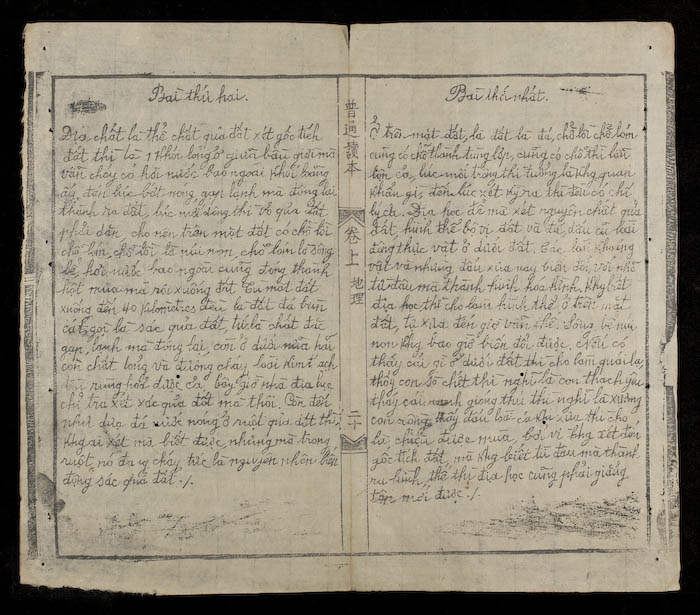 Bài thứ nhất.
Ở trên mặt đất, là đất là đá, chỗ lồi chỗ lóm
cũng có chỗ thành từng lớp, cũng có chỗ thì lẫn
lộn cả, lúc mới trông thì tưởng là khg quan
khẩn gì, đến lúc xét kỹ ra thì đều có chí
lý cả. Địa học để mà xét nguyên chất quả
đất, hình thể bộ vị đất và đá, dấu cũ loài
động thực vật ở dưới đất. Các loài khoáng
vật và những dấu xưa nay biến đổi, với nhẽ
từ đâu mà thành hình hóa hình. Khg biết
địa học thì cho làm hình thể ở trên mặt
đất, từ xưa đến giờ vẫn thế. Sông bể núi
non khg bao giờ biến đổi được. Nếu có
thấy cái gì ở dưới đất thì cho làm quái lạ,
thấy con sò chết thì nghĩ là con thạch yến
thấy cái nanh giống thú thì nghĩ là xương
con rồng, thấy dấu loài cá khi xưa thì cho
là chiêu được mưa, bởi vì khg xét đến
gốc tích đất, mà khg biết từ đâu mà thành
ra hình thể thì địa học cũng phải giảng
tập mới được ./.
普通讀本
卷上 地理
二十
Bài thứ hai.
Địa chất là thể chất quả đất xét gốc tích
đất thì là 1 khối lỏng ở giữa bầu giời mà
vẫn chạy có hơi nước bao ngoài khối lỏng
ấy, đến lúc bớt nóng gặp lạnh mà đông lại
thành ra đất, lúc mới đông thì vỏ quả đất
phải dăn cho nên trên mặt đất có chỗ lồi
chỗ lóm, chỗ lồi là núi non, chỗ lóm là sông
bể, hơi nước bao ngoài cũng đông thành
hột mưa mà rơi xuống đất. Từ mặt đất
xuống đến 40 kilomètres đều là đất đá bùn
cát, gọi là xác quả đất, tức là chất đặc
gặp lạnh mà đông lại, còn ở dưới nữa hãy
còn chất lỏng và đương chảy loài kim thạch
thì nung hóa được cả, bây giờ nhà địa học
chỉ tra xét xác quả đất mà thôi. Còn đến
như lửa đá nước nóng ở ruột quả đất thì
khg ai xét mà biết được, nhưng mà trong
ruột nó đã cháy tức là nguyên nhân biến
động xác quả đất ./.